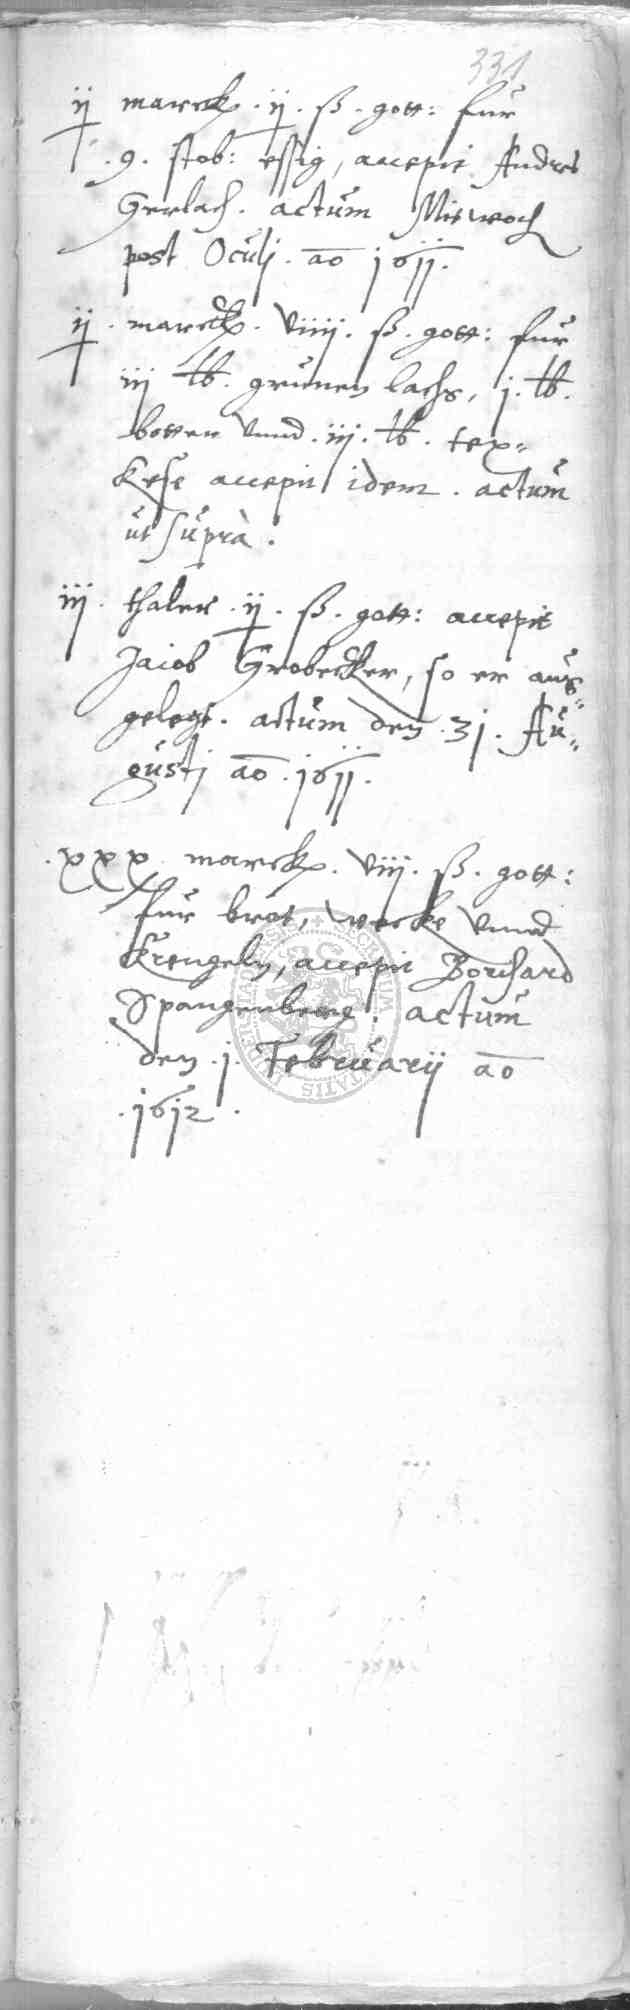 331
ij marck. ij. ß. gott: fur
.9. stob: essig, accepit Andres
Gerlach. actum Mitwoch
post Oculj. ao 1611.
ij. marck. viiij. ß. gott: fur
iij lb. grunen lachs, j. lb.
botter vnnd .iij. lb. tex-
kese accepit idem. actum
ut suprà.
iij. thaler .ij. ß. gott: accepit
Jacob Grobecker, so er aus-
gelegt. actum den .31. Au-
gustj ao .1611.
.xxx. marck. viij. ß. gott:
fur brot, wecke vnnd
Krengeln, accepit Borchard
Spangenberg. actum
den .j. Februarij ao
.1612.
SECRETUM